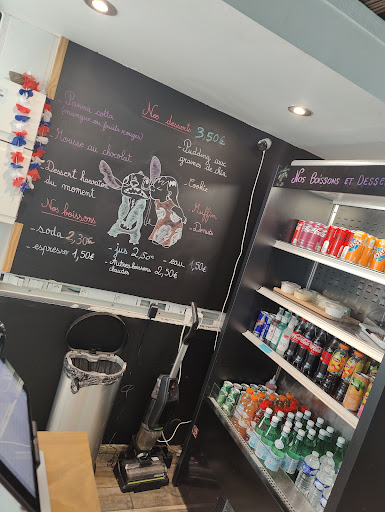 Nos desserts 3,50€
- Panna cotta
(mangue ou fruits rouges)
- Mousse au chocolat
- Dessert hawaïen
du moment
- Pudding aux
graines de chia
- Cookie
- Muffin
- Donuts
Nos boissons
- soda 2,30€
- espresso 1,50€
- jus 2,50€
- Autres boissons
chaudes 2,50€
- eau 1,50€
Nos Boissons et Desse